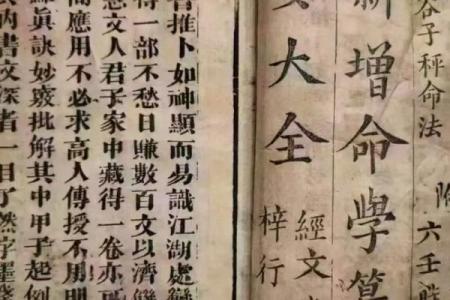 谷子秤命法 附六壬
新增命學
大全 經文
梓行
推卜如神顯而易識江湖處
得一部不愁日賺數百文以濟
文人君子家中藏得一卷亦可
應用不必求高人傳授不用明
眞訣妙竅批解其中甲子起例
書文深者一目了然字墨